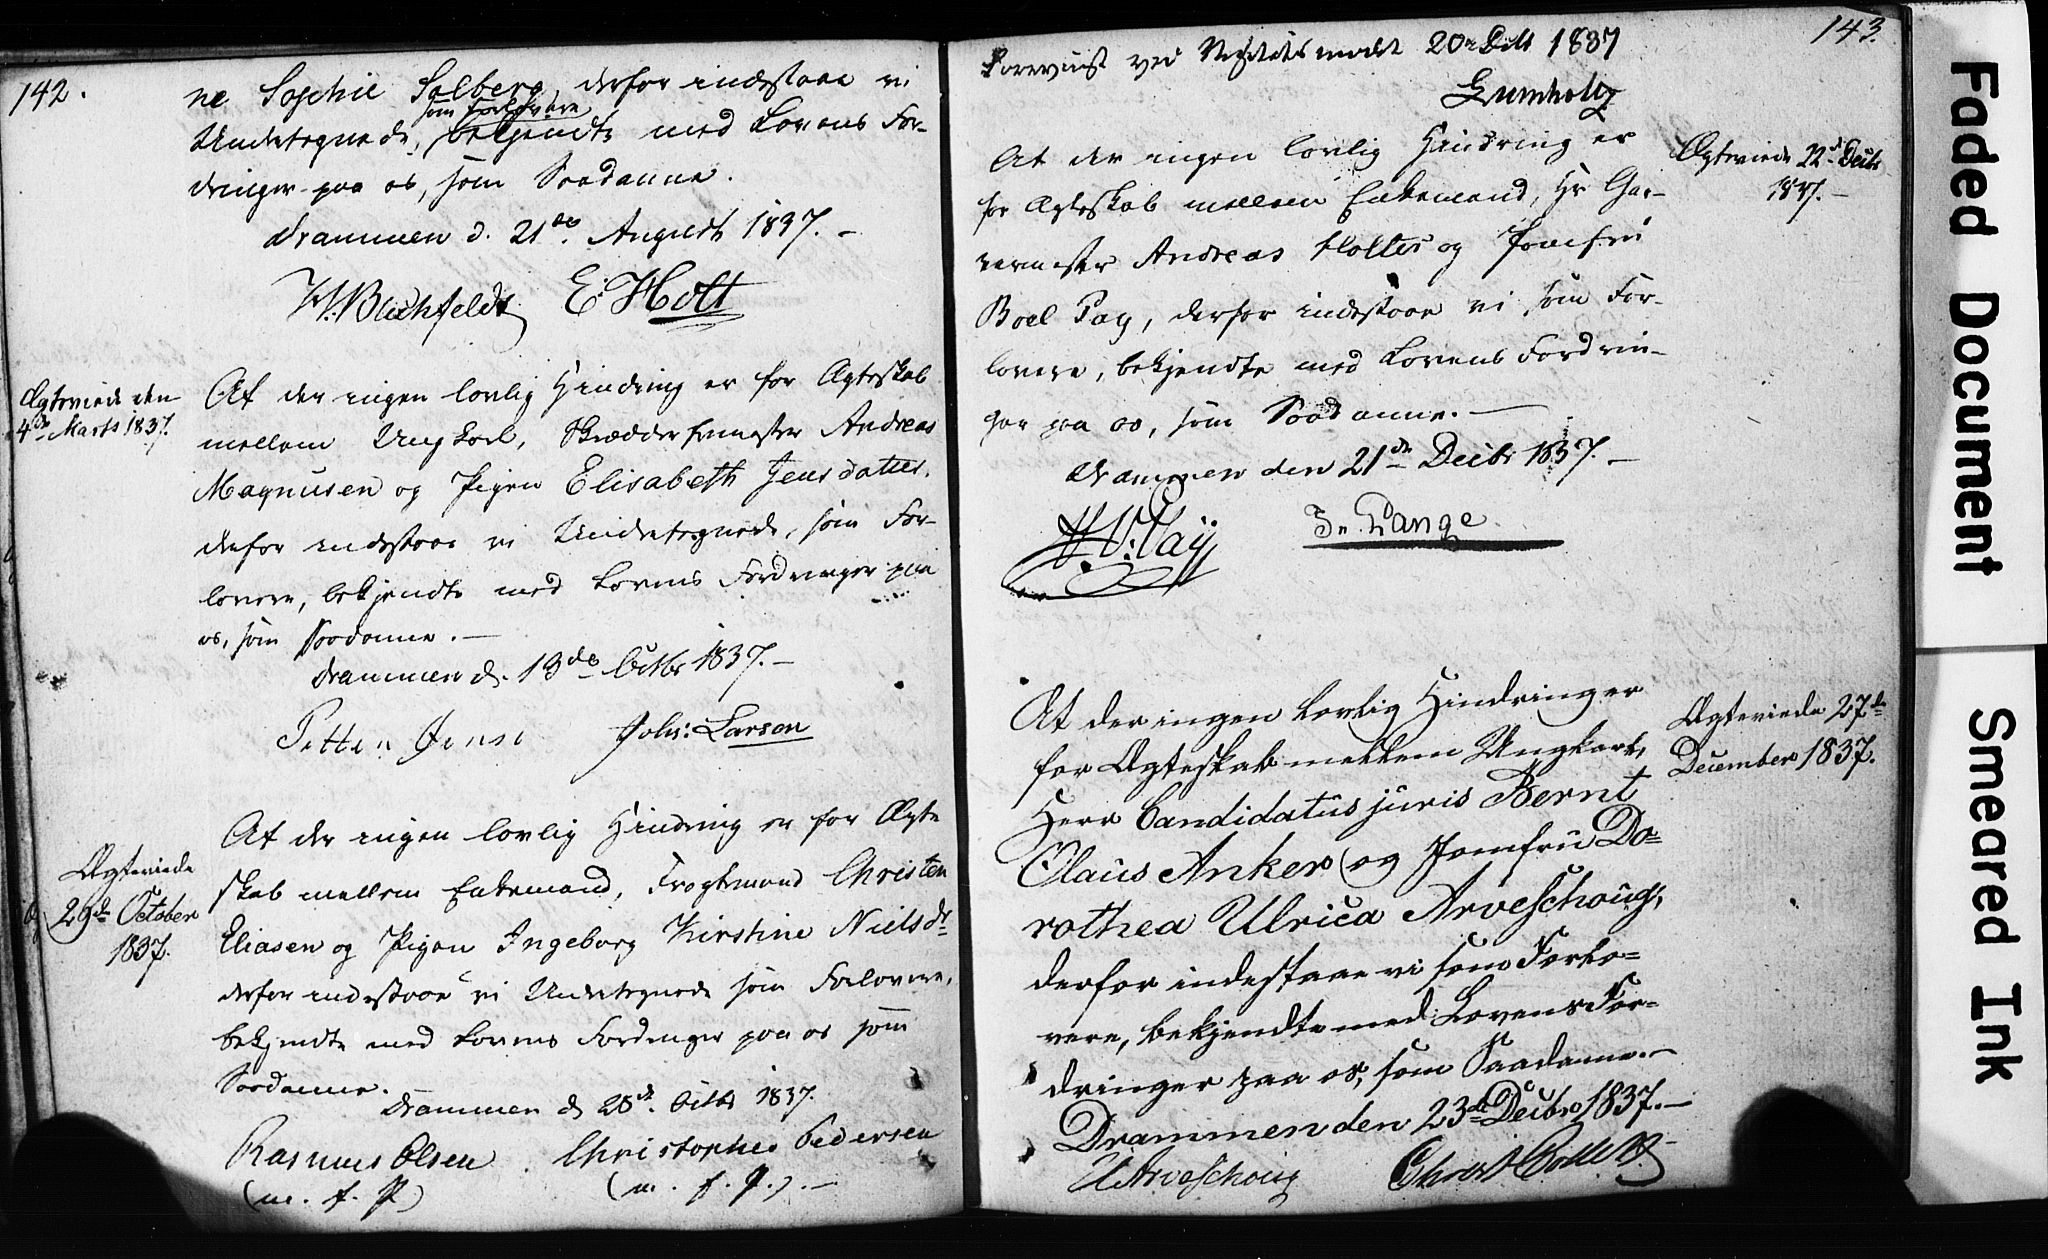 142.
ne Sophie Solberg, derfor indestaae vi
som Forlovere
Undertegnede, bekjendte med Lovens For-
dringer paa os, som Saadanne.
Drammen d. 21de August 1837. -
W. Buchfeldt E. Holt
Ægteviede den
4de Marts 1837.
At der ingen lovlig Hindring er for Ægteskab
mellem Ungkarl, Skrædder Andreas
Magnusen og Pigen Elisabeth Jensdatter,
derfor indestaae vi Undertegnede, som For-
lovere, bekjendte med Lovens Fordringer paa
os, som Saadanne. -
Drammen d. 13de Octbr 1837. -
Petter Jensen Johs: Larson
Ægteviede
29de October
1837.
At der ingen lovlig Hindring er for Ægte
skab mellem Enkemand, Fragtemand Christen
Eliasen og Pigen Ingeborg Kirstine Nielsdr
derfor indestaae vi Undertegnede som Forlovere,
bekjendte med Lovens Fordringer paa os som
Saadanne.
Drammen d 28de Octbr 1837.
Rasmus Olsen Christopher Pedersen
(m. f. P) (m. f. P.). -
143.
Foreviist ved Visitatsmødet 20de Decbr 1837
Lumholtz
At der ingen lovlig Hindring er
for Ægteskab mellem Enkemand, Hr Gar-
vermester Andreas Holter og Jomfru
Boel Pay, derfor indestaae vi som For-
lovere, bekjendte med Lovens Fordrin-
ger paa os, som Saadanne. -
Drammen den 21de Decbr 1837. -
Ægteviede 22de Decbr
1837. -
H. V. Pay Lange
At der ingen lovlig Hindring er
for Ægteskab mellem Ungkarl,
Herr Candidatus juris Bernt
Olaus Anker og Jomfru Do=
rothea Ulrica Arveschoug,
derfor indestaae vi som Forlo=
vere, bekjendte med Lovens For=
dringer paa os, som Saadanne. -
Drammen den 23de Decbr 1837. -
Ægteviede 27de
December 1837.
U Arveschoug
Faded Document
Smeared Ink